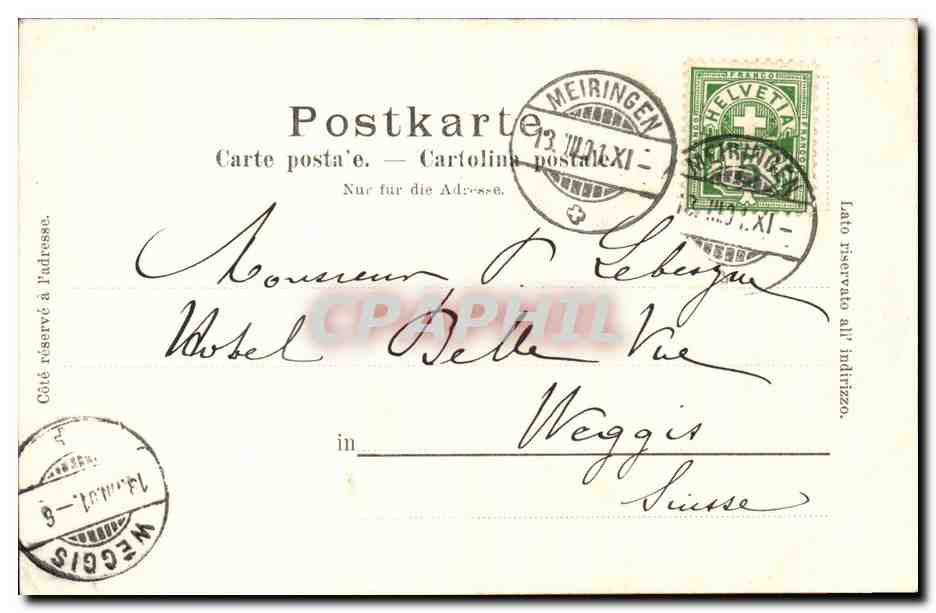 Postkarte
Carte posta'e. — Cartolina postale.
Nur für die Adresse.
MEIRINGEN
13.VIII.01.XI–
FRANCO
HELVETIA
FRANCO
FRANCO
MEIRINGEN
13.VIII.01.XI–
Côté réservé à l'adresse.
Lato riservato all' indirizzo.
Monsieur P. Lebesgue
Hotel Belle Vue
in Weggis
Suisse
CPAPHIL
13.VIII.01.–6
WEGGIS